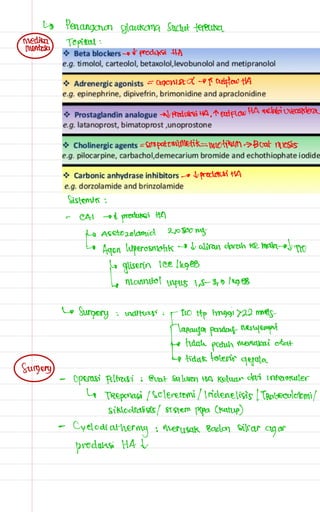 Penanganan glaukoma Sudut terbuka
medika mentosa
Topikal :
❖ Beta blockers → ↓ produksi HA
e.g. timolol, carteolol, betaxolol,levobunolol and metipranolol
❖ Adrenergic agonists = agonist α → ↑ outflow HA
e.g. epinephrine, dipivefrin, brimonidine and apraclonidine
❖ Prostaglandin analogue → ↓ produksi HA, ↑ outflow HA
e.g. latanoprost, bimatoprost ,unoprostone
❖ Cholinergic agents = → Buat miosis
e.g. pilocarpine, carbachol,demecarium bromide and echothiophate iodide
❖ Carbonic anhydrase inhibitors → ↓ produksi HA
e.g. dorzolamide and brinzolamide
Sistemik :
- CAI → ↓ produksi HA
Asetozolamid
Agen hiperosmotik → ↓ aliran darah ke → ↓ TIO
gliserin 1cc/kgBB
mannitol infus /kgBB
Surgery : indikasi : TIO ttp tinggi >22 mmHg
lapangan pandang menyempit
tidak patuh memakai obat
tidak tolerir
Surgery
- operasi Filtrasi : Buat saluran HA keluar dari
Trepanasi / Scleretomi / Iridenclisis / Trabeculotomi /
siklodialisis / sistem pipa
- Cyclodiathermy : merusak Badan siliar agar
produksi HA ↓